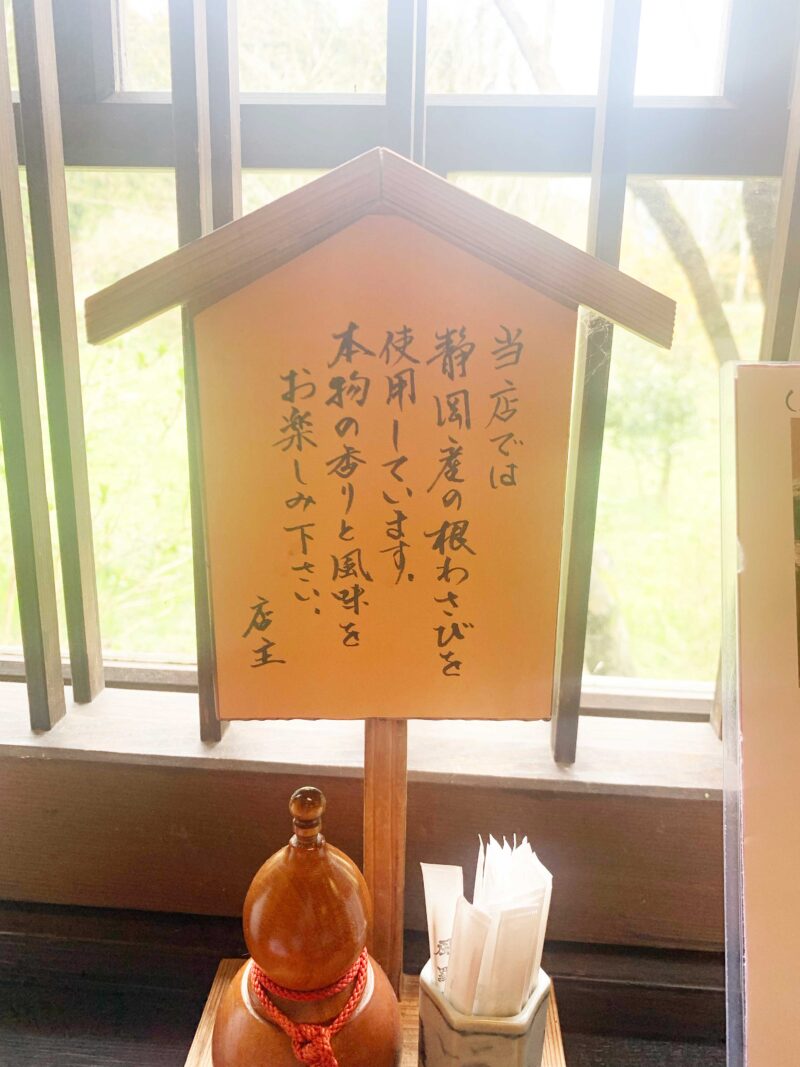 当店では
静岡産の根わさびを
使用しています。
本物の香りと風味を
お楽しみ下さい。
店主